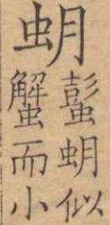 蚏
蟚蚏似
蟹而小